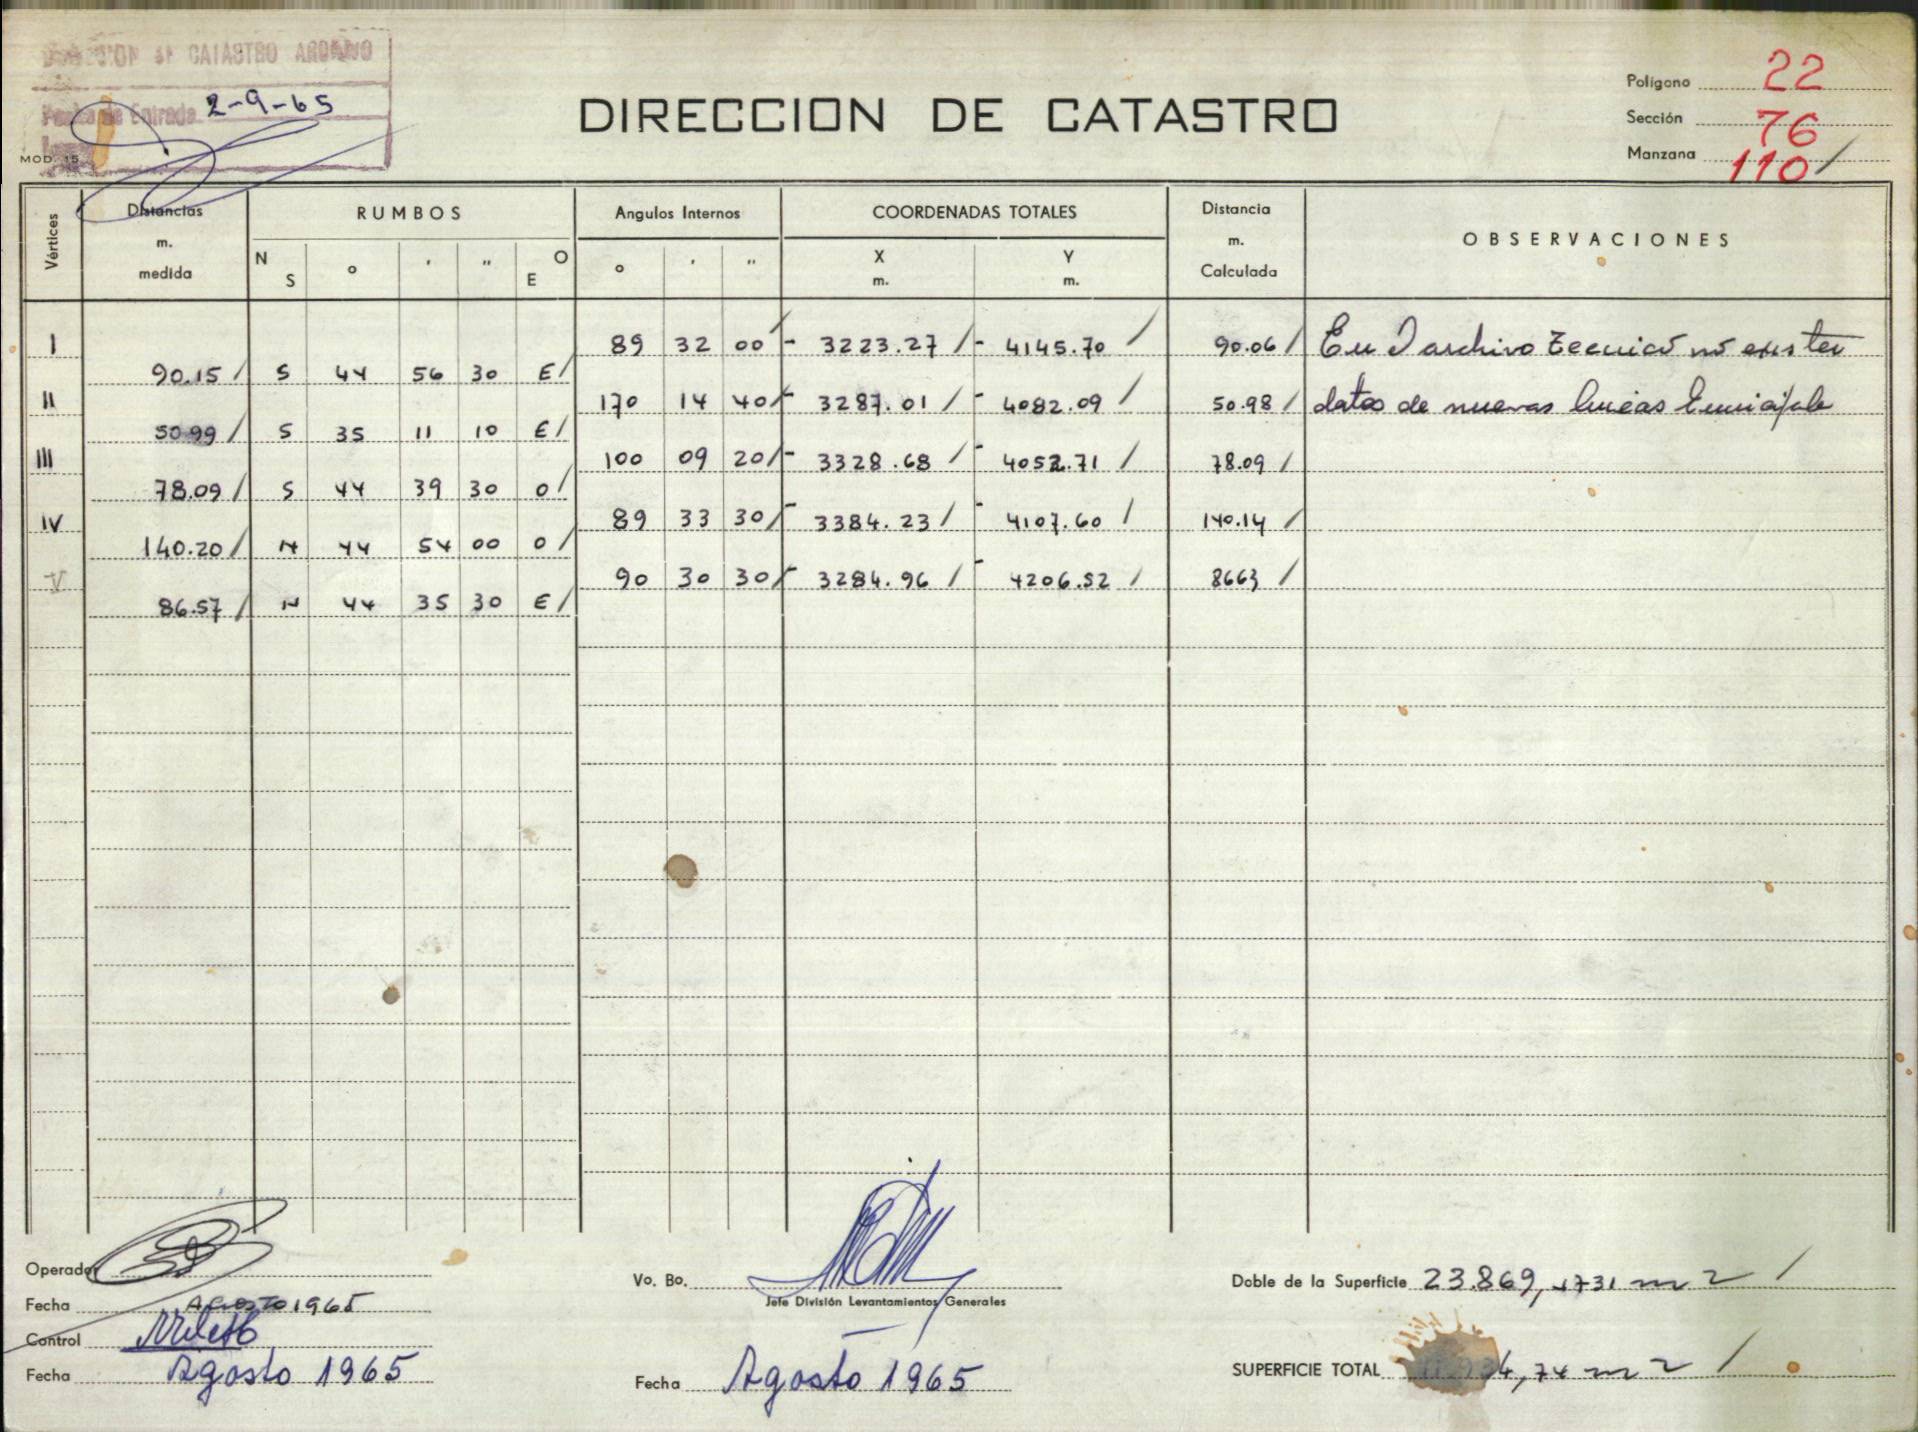 CATASTRO
2-9-65
MOD. 15
DIRECCION DE CATASTRO
Polígono 22
Sección 76
Manzana 110/
Vértices
Distancias m. medida
RUMBOS
N S ° ' " O E
Angulos Internos
° ' "
COORDENADAS TOTALES
X m. Y m.
Distancia m. Calculada
OBSERVACIONES
I 89 32 00/ - 3223.27 / - 4145.70 / 90.06 / archivo tecnico no existen
90.15 / S 44 56 30 E/
II 170 14 40/ - 3287.01 / - 4082.09 / 50.98 / datos de nuevas lineas
50.99 / S 35 11 10 E/
III 100 09 20/ - 3328.68 / - 4052.71 / 78.09 /
78.09 / S 44 39 30 O/
IV 89 33 30/ - 3384.23 / - 4107.60 / 140.14 /
140.20 / N 44 54 00 O/
V 90 30 30/ - 3284.96 / - 4206.52 / 8663 /
86.57 / N 44 35 30 E/
Operador
Fecha AGOSTO 1965
Control
Fecha Agosto 1965
Vo. Bo.
Jefe División Levantamientos Generales
Fecha Agosto 1965
Doble de la Superficie 23.869, m2 /
SUPERFICIE TOTAL m2 /